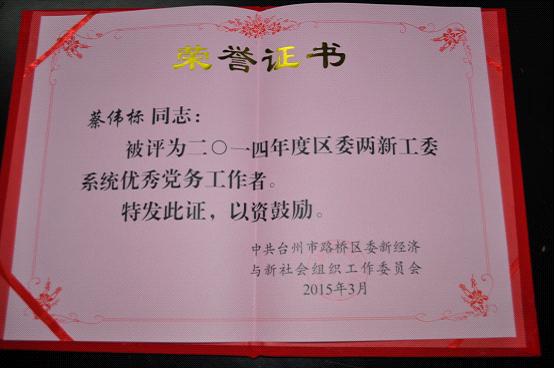 荣誉证书
蔡伟标 同志：
被评为二〇一四年度区委两新工委
系统优秀党务工作者。
特发此证，以资鼓励。
中共台州市路桥区委新经济
与新社会组织工作委员会
2015年3月